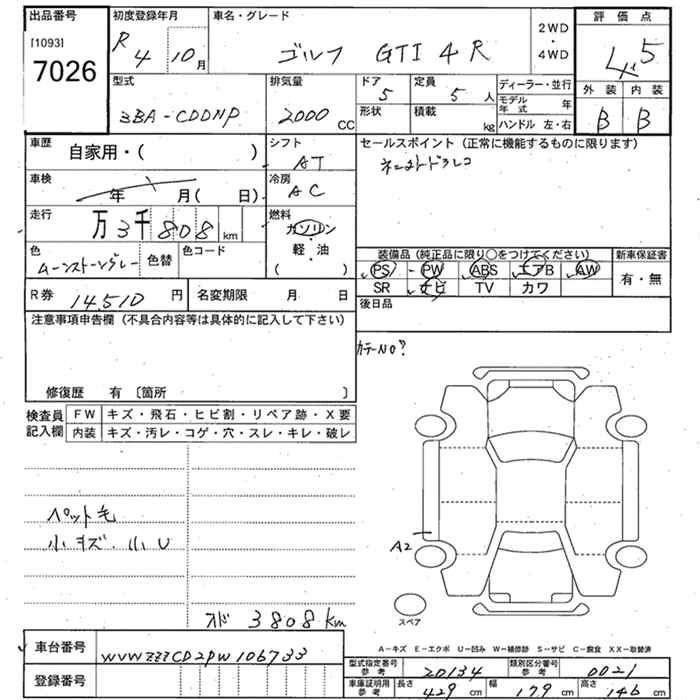 出品番号
[1093]
7026
初度登録年月
R 4 10 月
車名・グレード
ゴルフ GTI 4R
2WD
・
4WD
評価点
4.5
外装 内装
B B
型式
3BA-CDDNP
排気量
2000 CC
ドア
5
定員
5 人
形状
積載
kg
ディーラー・並行
モデル年式 年
ハンドル 左・右
車歴
自家用・( )
シフト
AT
セールスポイント (正常に機能するものに限ります)
車検
年 月( 日)
冷房
AC
走行
万 3千 808 km
燃料
ガソリン
・
軽・油
( )
色
ムーンストーングレー
色替
色コード
装備品 (純正品に限り○をつけてください)
新車保証書
PS PW ABS エアB AW
SR ナビ TV カワ
有・無
R券 14,510 円
名変期限 月 日
後日品
注意事項申告欄 (不具合内容等は具体的に記入して下さい)
修復歴 有 〔箇所 〕
カラーNO?
検査員記入欄
FW キズ・飛石・ヒビ割・リペア跡・X要
内装 キズ・汚レ・コゲ・穴・スレ・キレ・破レ
ペット毛
小キズ・小U
A2
スペア
オド 3808 km
A－キズ E－エクボ U－凹み W－補修跡 S－サビ C－腐食 XX－取替済
車台番号 WVWZZZCD2PW106733
登録番号
型式指定番号 参考 20134
類別区分番号 参考 0021
車庫証明用 参考 長さ 429 cm 幅 179 cm 高さ 146 cm